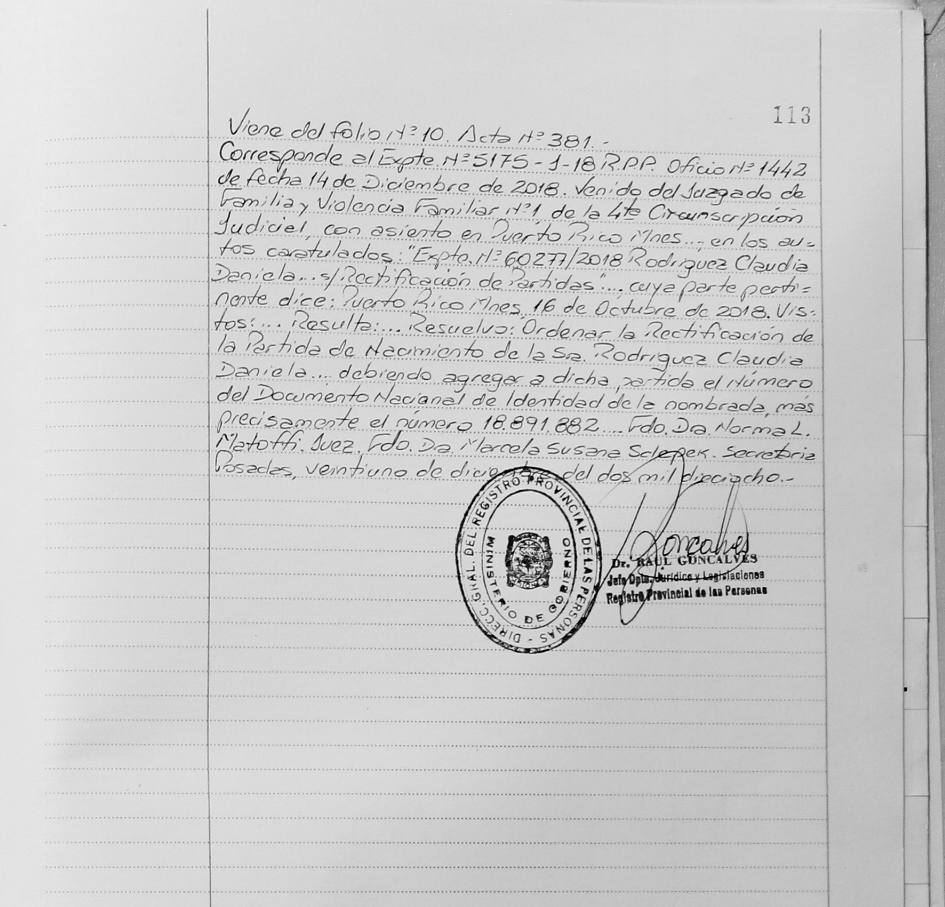 113
Viene del folio Nº 10. Acta Nº 381.-
Corresponde al Expte. Nº 5175-1-18 R.P.P. Oficio Nº 1442
de fecha 14 de Diciembre de 2018. Venido del Juzgado de
Familia y Violencia Familiar Nº 1, de la 4ta Circunscripción
Judicial, con asiento en Puerto Rico Mnes..., en los au-
tos caratulados: "Expte. Nº 60277/2018 Rodriguez Claudia
Daniela... s/Rectificación de Partidas"... cuya parte perti-
nente dice: Puerto Rico Mnes, 16 de Octubre de 2018. Vis-
tos:... Resulta:... Resuelvo: Ordenar la Rectificación de
la Partida de Nacimiento de la Sra. Rodriguez Claudia
Daniela... debiendo agregar a dicha partida el Número
del Documento Nacional de Identidad de la nombrada, más
precisamente el número 18.891.882.... Fdo. Dra. Norma L.
Juez. Fdo. Dra. Marcela Susana Secretaria
Posadas, veintiuno de diciembre del dos mil dieciocho.-
DIRECC. GRAL. DEL REGISTRO PROVINCIAL DE LAS PERSONAS -
MINISTERIO DE GOBIERNO
Goncalves
Dr. RAUL GONCALVES
Jefe Dpto. Jurídico y Legislaciones
Registro Provincial de las Personas